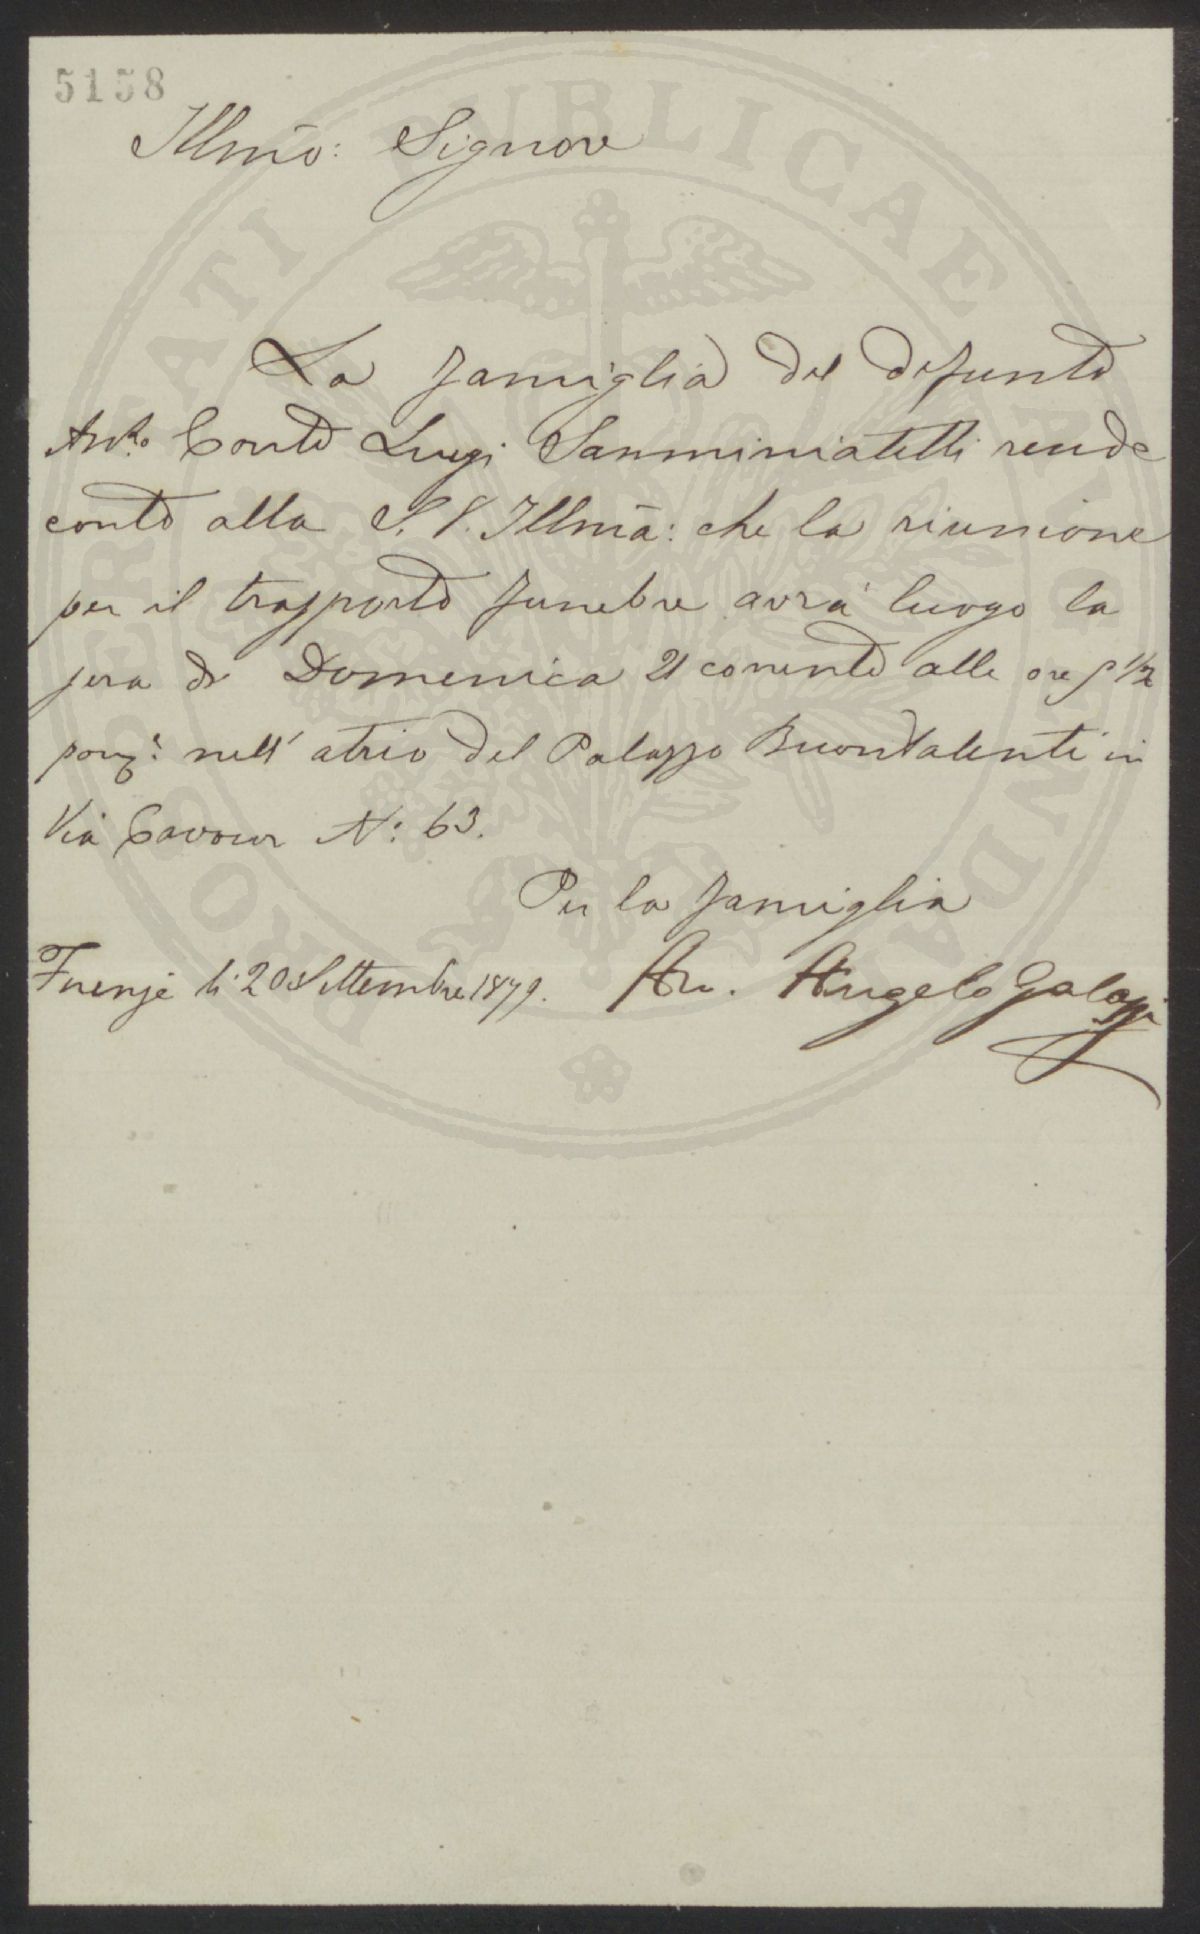 5158
Illmo: Signore
La famiglia del defunto
Conte Luigi Sanminiatelli rende
conto alla S. V. Illma: che la riunione
per il trasporto funebre avrà luogo la
sera di Domenica 21 corrente alle ore 5 1/2
pom.e nell' atrio del Palazzo Buontalenti in
Via Cavour N: 63.
Per la famiglia
Firenze li 20 Settembre 1879. Angelo
PROSPERITATI PUBLICAE AUGENDAE